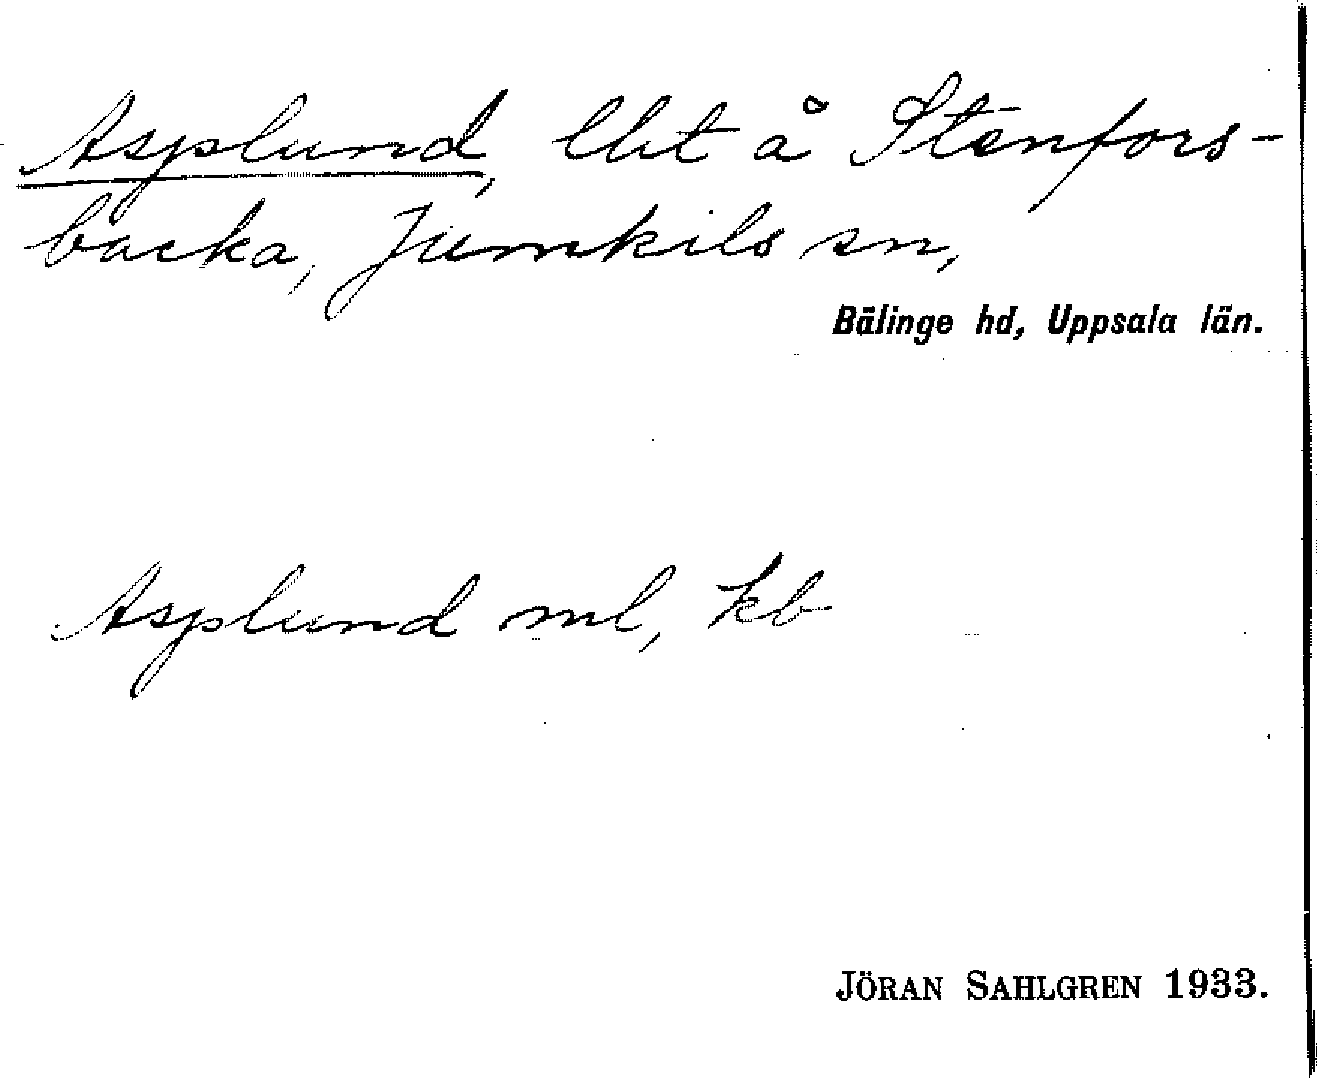 Asplund, lht å Stenfors-
backa, Jumkils sn,
Bälinge hd, Uppsala län.
Asplund ml, kb
JÖRAN SAHLGREN 1933.